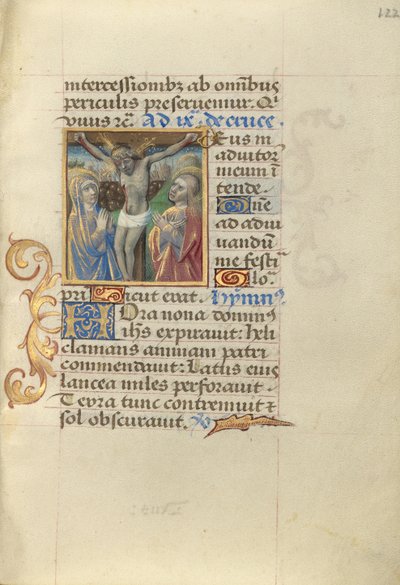 122
intercessionibꝫ ab omnibus
periculis preseruemur. Qi
viuus rc̄. Ad ixᵃ. de cruce
Eus in
adiutor
meum ī
tende
Dn̄e
ad adiu
uandū
me festi
Glo
pri Sicut erat. Hymnꝰ
Hora nona dominꝰ
ihs expirauit: heli
clamans animam patri
commendauit: Latus eius
lancea miles perforauit
Terra tunc contremuit ⁊
sol obscurauit. v̄